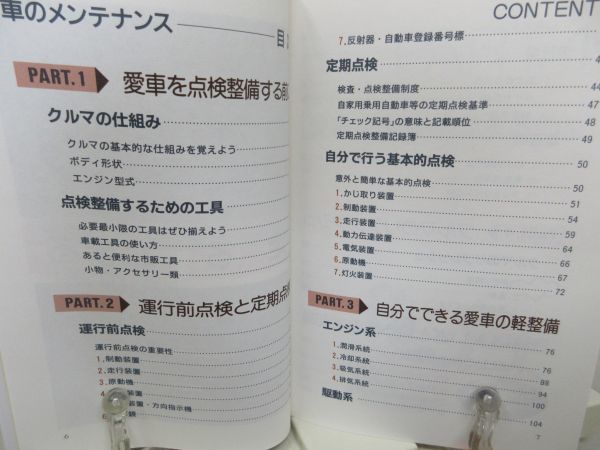 車のメンテナンス
目
PART.1 愛車を点検整備する前
クルマの仕組み
クルマの基本的な仕組みを覚えよう
ボディ形状
エンジン型式
点検整備するための工具
必要最小限の工具はぜひ揃えよう
車載工具の使い方
あると便利な市販工具
小物・アクセサリー類
PART.2 運行前点検と定期点検
運行前点検
運行前点検の重要性
1.制動装置
2.走行装置
3.原動機
4. 装置
置・方向指示機
6 鏡
6
CONTENT
7.反射器・自動車登録番号標
定期点検
検査・点検整備制度 44
自家用乗用自動車等の定期点検基準 47
「チェック記号」の意味と記載順位 48
定期点検整備記録簿 49
自分で行う基本的点検 50
意外と簡単な基本的点検 50
1.かじ取り装置 51
2.制動装置 54
3.走行装置 59
4.動力伝達装置 64
5.電気装置 66
6.原動機 67
7.灯火装置 72
PART.3 自分でできる愛車の軽整備
エンジン系 76
1.潤滑系統 76
2.冷却系統 88
3.吸気系統 94
4.排気系統 100
駆動系 104
7